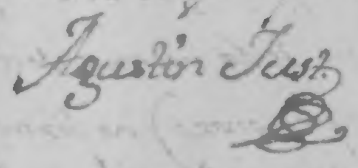 Agustin Just